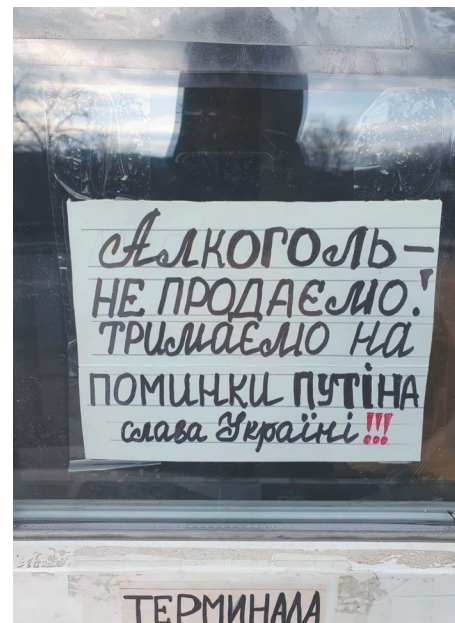 Алкоголь –
не продаємо!
тримаємо на
поминки Путіна
слава Україні!!!
ТЕРМИНАЛА